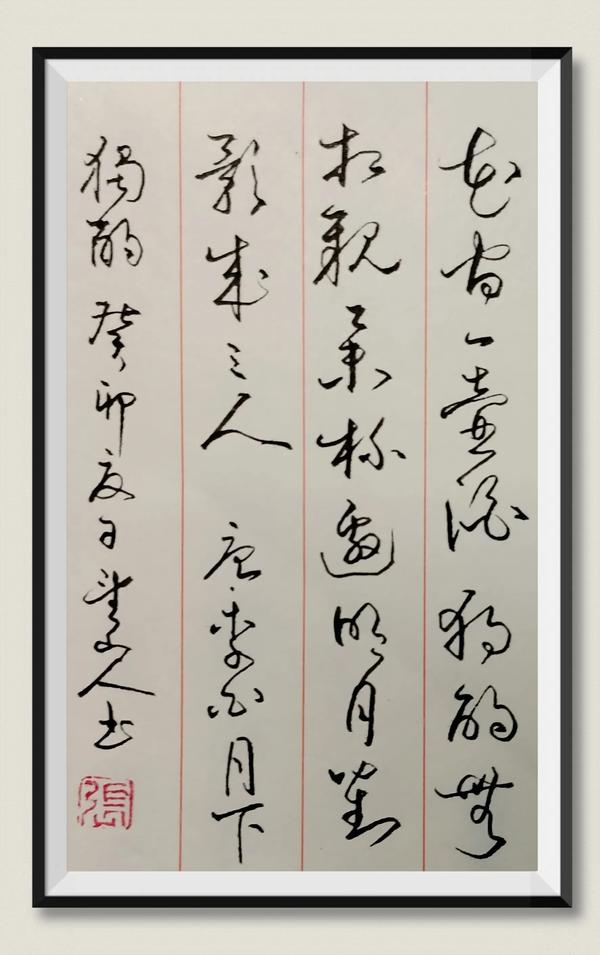 花间一壶酒独酌無
相親举杯邀明月對
影成三人 唐李白月下
獨酌 癸卯夏日 山人书
張